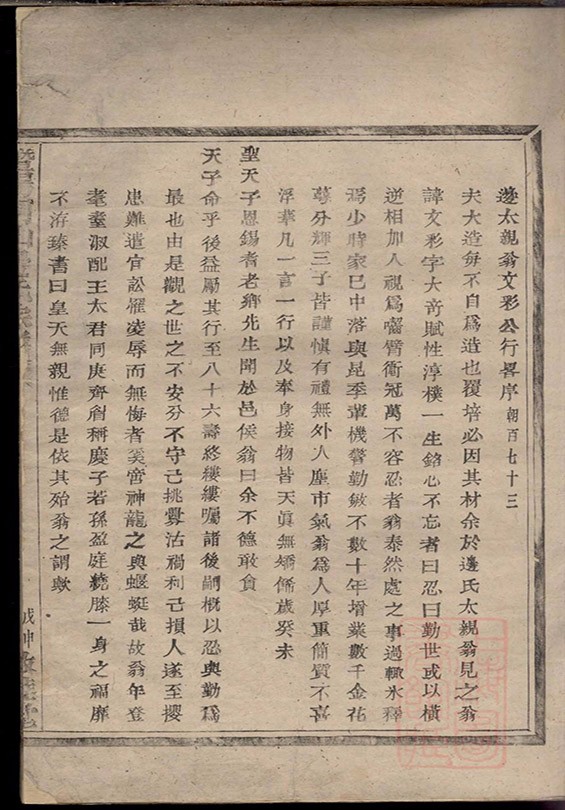 邊太親翁文彩公行畧序 朝百七十三
夫大造每不自爲造也覆培必因其材余於邊氏太親翁見之翁
諱文彩字大奇賦性淳樸一生銘心不忘者曰忍曰勤世或以橫
逆相加人視爲囓臂衝冠萬不容忍者翁泰然處之事過輒氷釋
焉少時家已中落與昆季輩機警勤敏不數十年增業數千金花
萼分輝三子皆謹慎有禮無外人塵市氣翁爲人厚重簡質不喜
浮華凡一言一行以及奉身接物皆天眞無矯僞歲癸未
聖天子恩錫耆老鄉先生聞於邑侯翁曰余不德敢貪
天子命乎後益厲其行至八十六壽終縷縷囑諸後嗣概以忍與勤爲
最也由是觀之世之不安分不守己挑釁沽禍利己損人遂至攖
患難遭官訟罹凌辱而無悔者奚啻神龍之與蝘蜓哉故翁年登
耄耋淑配王太君同庚齊創稱慶子若孫盈庭繞膝一身之福靡
不洊臻書曰皇天無親惟德是依其殆翁之謂歟
戊申